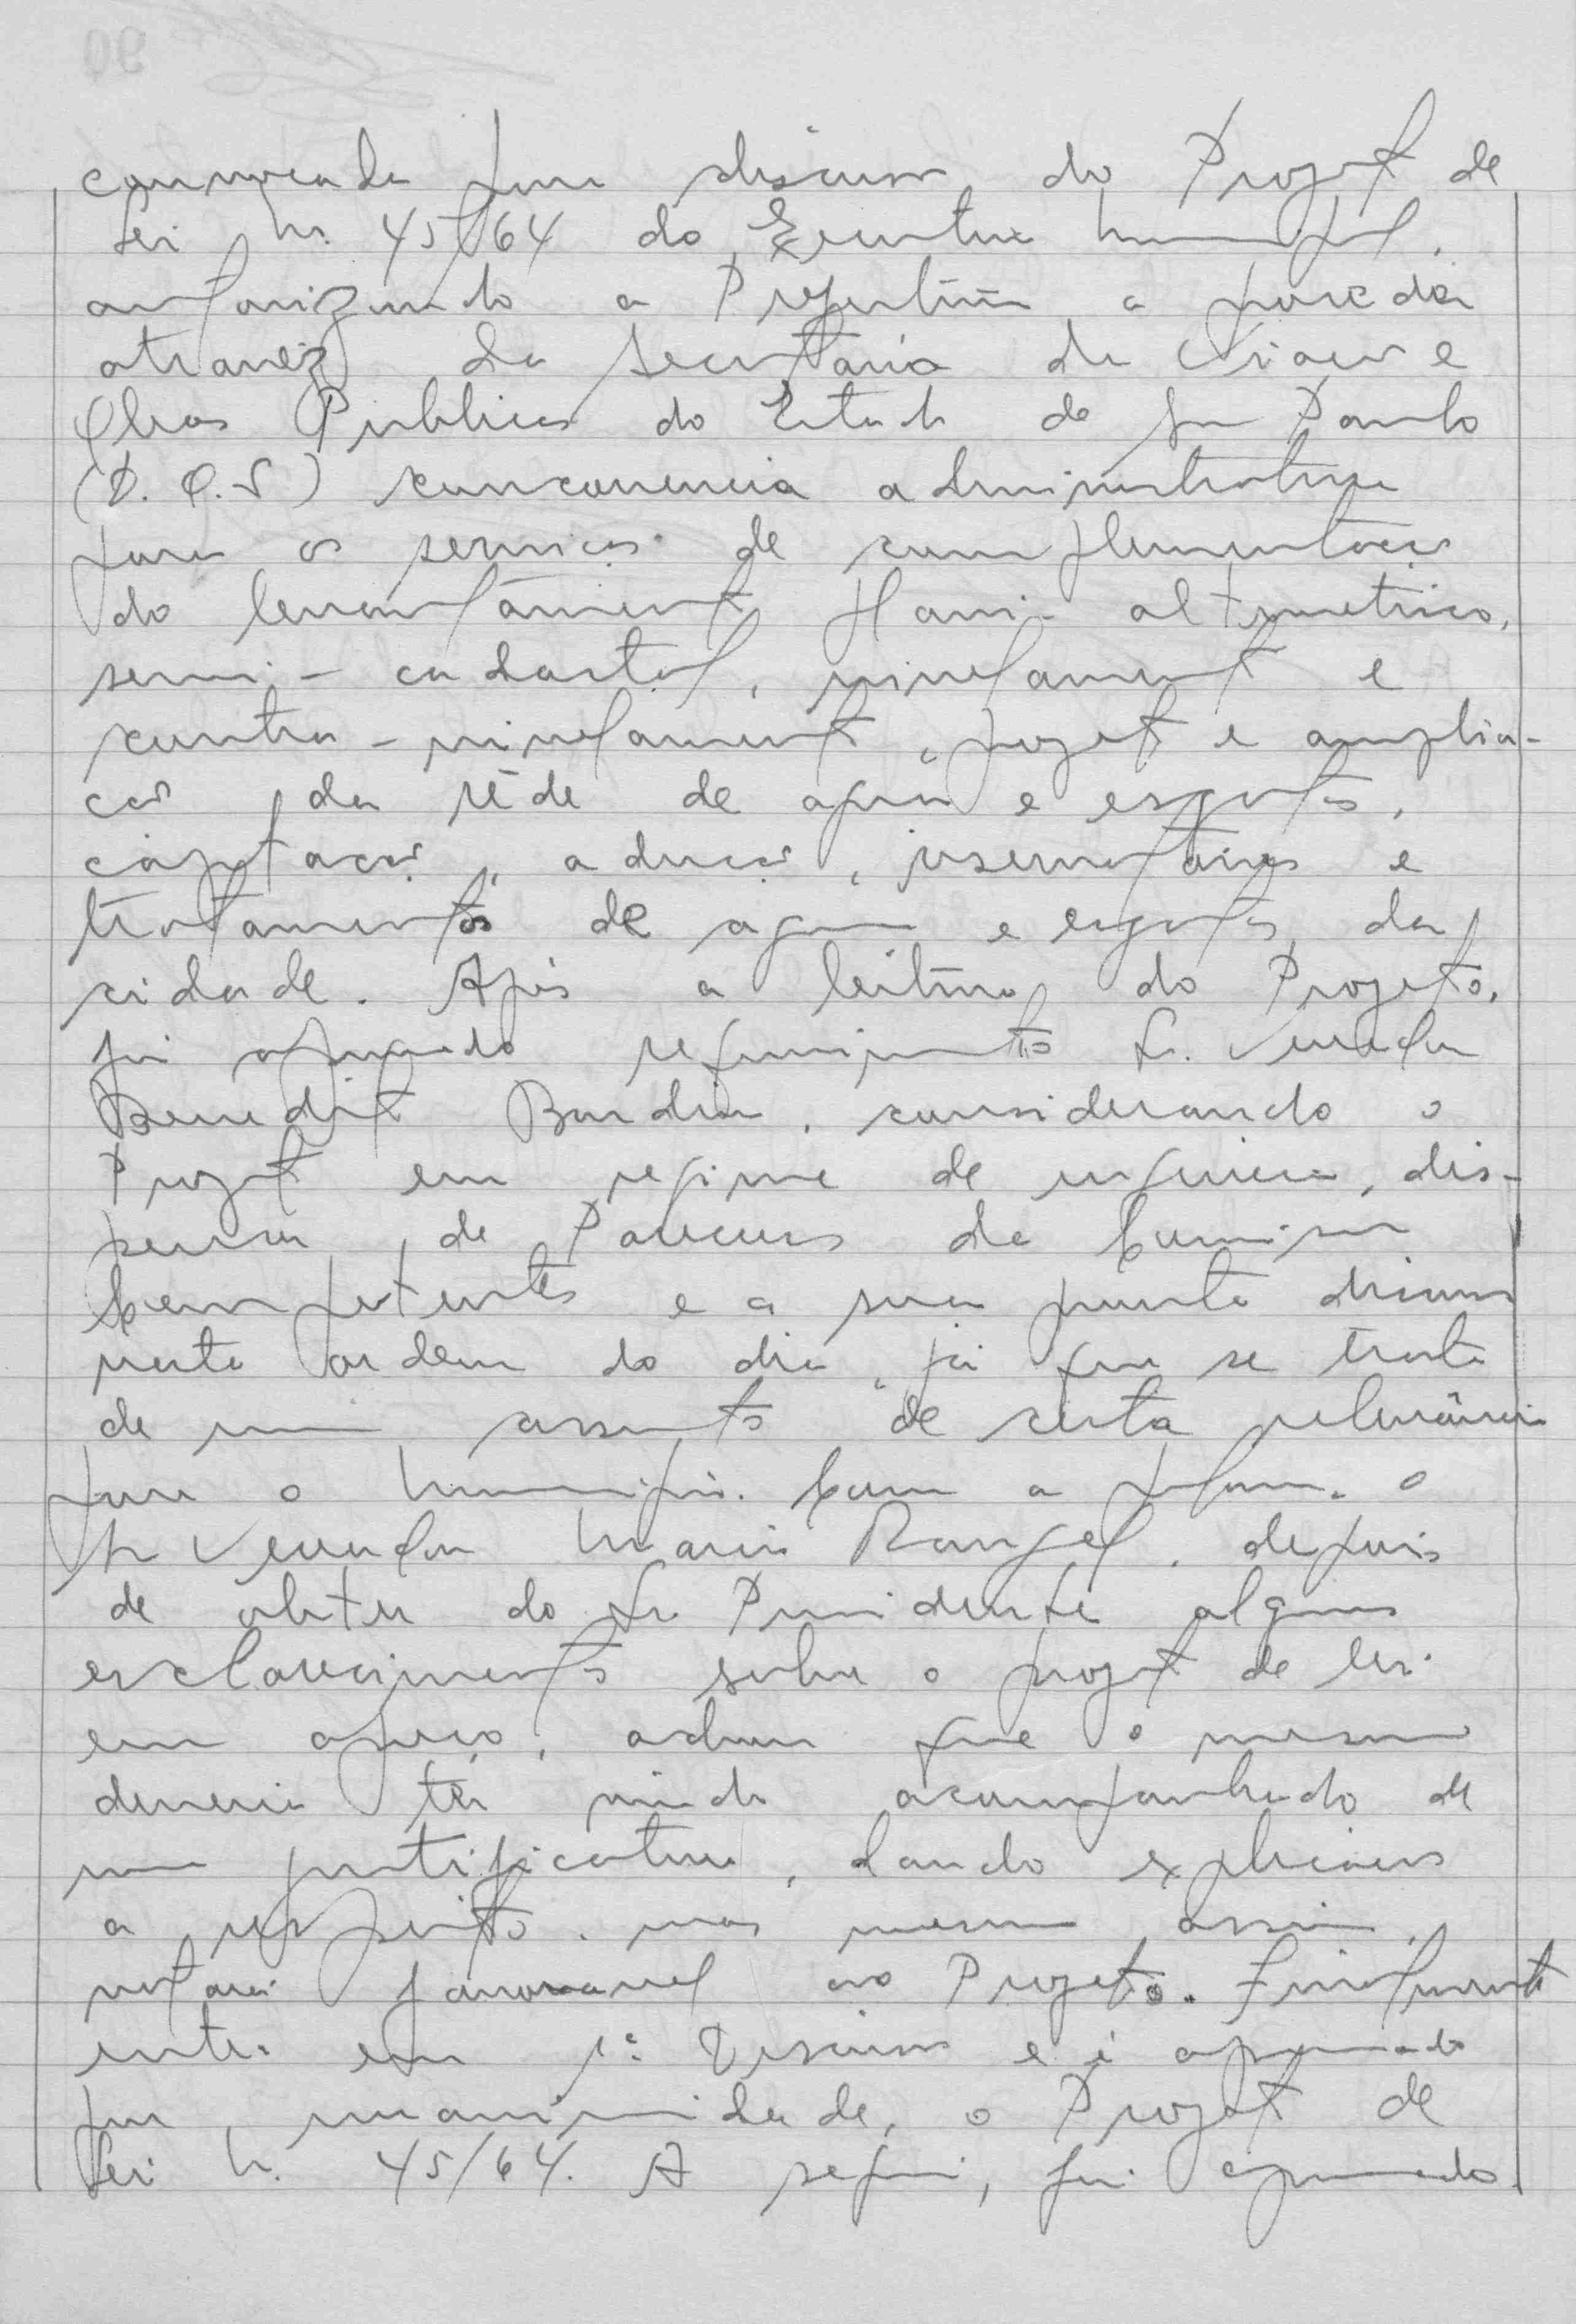 convocada para discussão do Projeto de
Lei nr. 45/64 do Executivo Municipal,
autorizando a Prefeitura a proceder
atravéz da Secretaria da Viação e
Obras Publicas do Estado de São Paulo
(D.O.S) concorrencia administrativa
para os serviços de complementação
do levantamento plani-altimetrico,
semi-cadastral, nivelamento e
contra-nivelamento, projeto e amplia-
ção da rêde de agua e esgotos,
captação, adução, reservatórios e
tratamentos de agua e esgotos da
cidade. Após a leitura do Projeto,
foi aprovado requerimento Sr. Vereador
Benedito , considerando o
Projeto em regime de urgencia, dis-
pensa de Pareceres da Comissão
Competentes e a sua pronta discussão
nesta ordem do dia, já que se trata
de um assunto de certa relevância
para o Municipio. Com a palavra o
Sr Vereador Mario Rangel, depois
de obter do Sr Presidente alguns
esclarecimentos sobre o projeto de lei
em apreço, achava que o mesmo
deveria ter vindo acompanhado de
uma justificativa, dando explicações
a respeito, mas mesmo assim,
votará favoravel ao Projeto. Finalmente
entra em 1ª Discussão e é aprovado
por unanimidade, o Projeto de
Lei n. 45/64. A seguir, foi aprovado